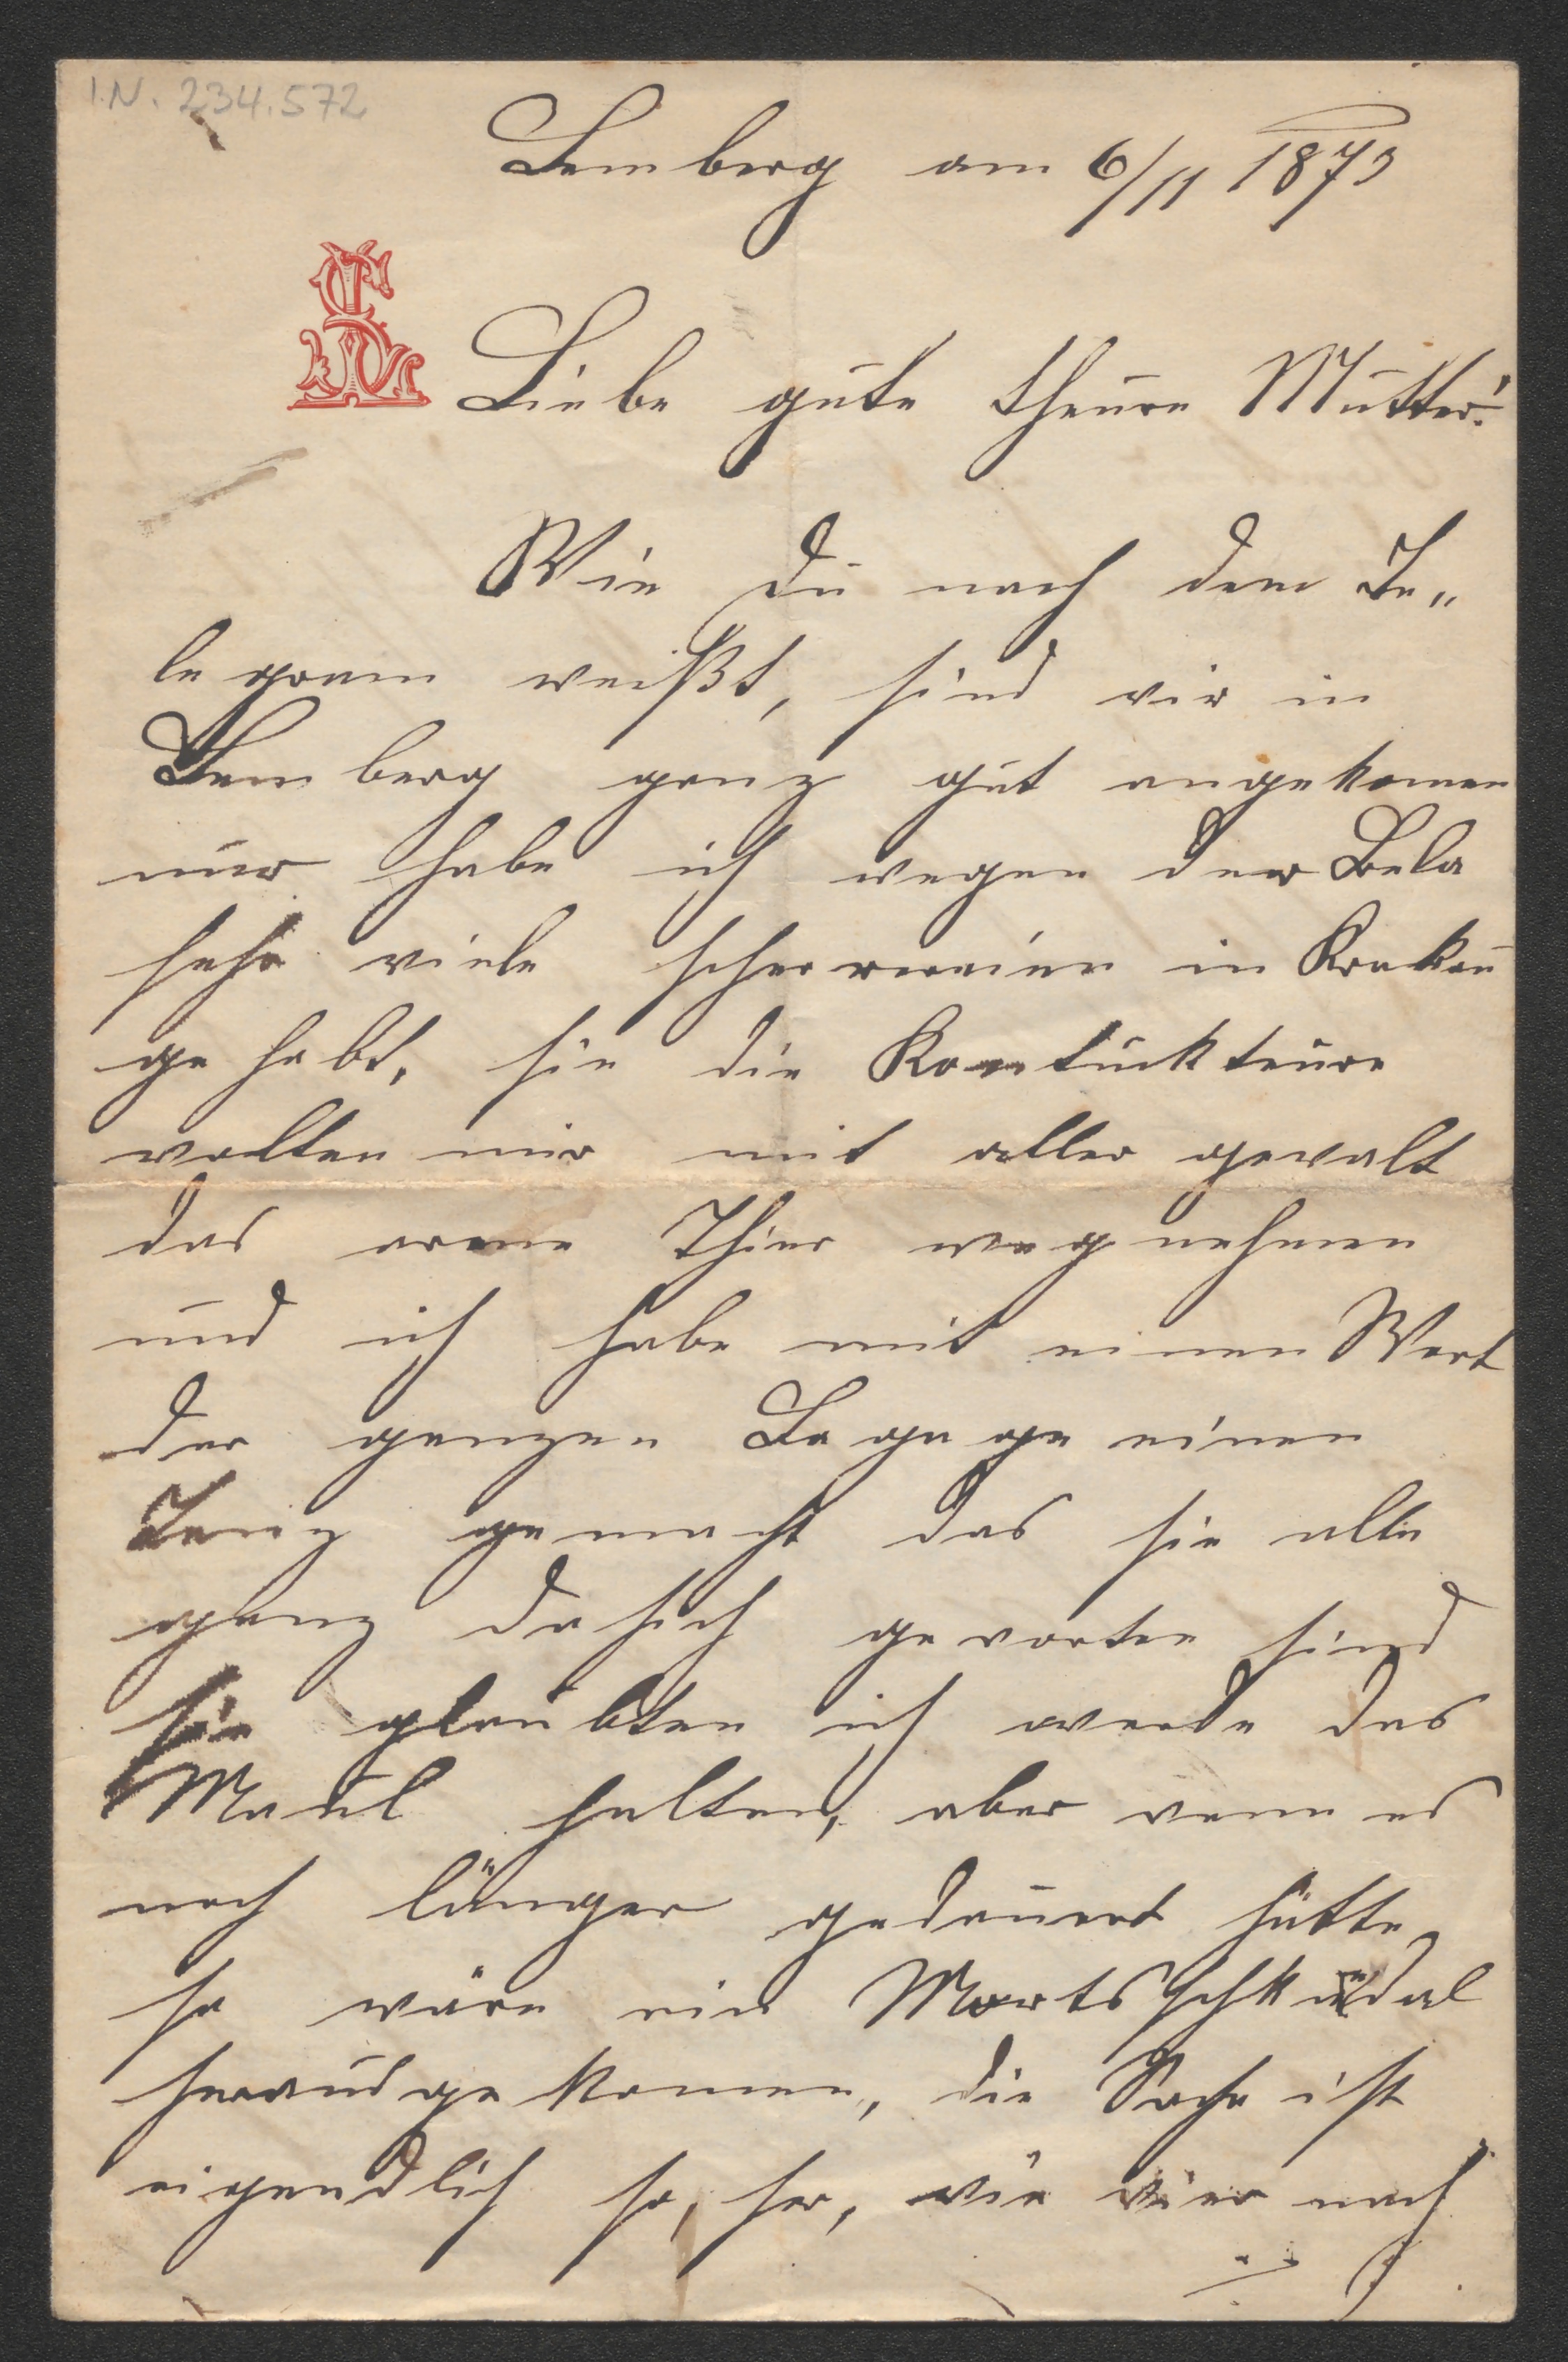 I.N. 234.572
Lemberg am 6/11 1873
Liebe gute theure Mutter!
Wie Du nach dem Te„
legram weißt, sind wir in
Lemberg ganz gut angekomen
nur habe ich wegen der Bela
sehr viele scherrereien in Krakau
gehabt, hie die Kontuckteure
wolten mir mit aller gewalt
das arme Thier wegnehmen
und ich habe mit einen Wort
der ganzen Bagage einen
gemacht das sie alle
ganz dasich geworten sind
sie glaubten ich werde das
Maul halten, aber wenn es
noch länger gedauert hätte
so wäre ein Morts schkadal
herausgekomen, die Sache ist
eigendlich so, her, wie wier nach